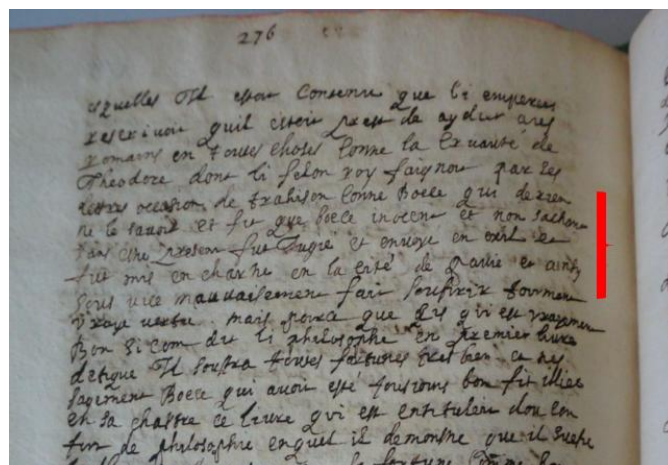 276
esquelles Il estoit Contenu que li emperies
rescrivoit quil estoit prest de aydier aux
romains en toutes choses Contre la Cruauté de
Theodore dont li felon roy faignoit par les
lettres occasion de trahison Contre Boece qui de rien
ne le savoit et fit que boece inocent et non sachant
fut Jugié et envoye en exil et
fut mis en chartre en la cité de Pavie et ainsy
Sous vice mauvaisement fait souffrir tourment
vraye vertu. mais pource que cis qui est vrayment
Bon Si com dit li philosophe en premier livre
detique Il soustra toutes fortunes tres bien ce nes
sagement Boece qui avoit esté tousiours bon fit illec
en sa chastre ce livre qui est entitulein dou Con
fort de philosophie enquel il demonstre que il
la fortune